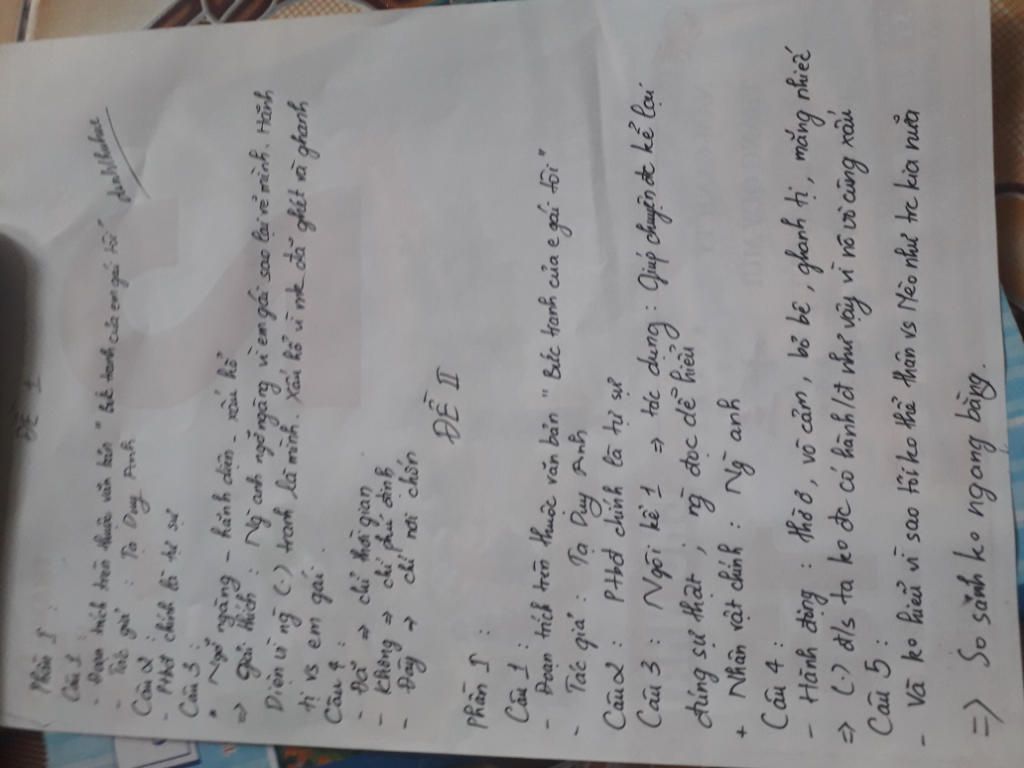 ĐỀ 1
Phần I :
Câu 1 :
- Đoạn trích trên thuộc văn bản " Bức tranh của em gái tôi "
- Tác giả : Tạ Duy Anh
Câu 2 :
- PTBĐ chính là tự sự
Câu 3 :
* Ngỡ ngàng - hãnh diện - xấu hổ
=> Giải thích : Ng anh ngỡ ngàng vì em gái sao lại vẽ mình. Hãnh
Diện vì ng (-) tranh là mình. Xấu hổ vì mk đã ghét và ghanh
tị vs em gái.
Câu 4 :
- Đã => chỉ thời gian
- Không => chỉ phủ định
- Đây => chỉ nơi chốn
ĐỀ II
Phần I :
Câu 1 :
- Đoạn trích trên thuộc văn bản " Bức tranh của e gái tôi "
- Tác giả : Tạ Duy Anh
Câu 2 : PTBĐ chính là tự sự
Câu 3 : Ngôi kể 1 => tác dụng : Giúp chuyện đc kể lại
đúng sự thật , ng đọc dễ hiểu
+ Nhân vật chính : Ng anh
Câu 4 :
- Hành động : thờ ơ, vô cảm, bỏ bê, ghanh tị, mắng nhiếc
=> (-) đ/s ta ko đc có hành lót như vậy vì nó vô cùng xấu
Câu 5 :
- Và ko hiểu vì sao tôi ko thể thân vs Mèo như trc kia nữa
=> So sánh ko ngang bằng.